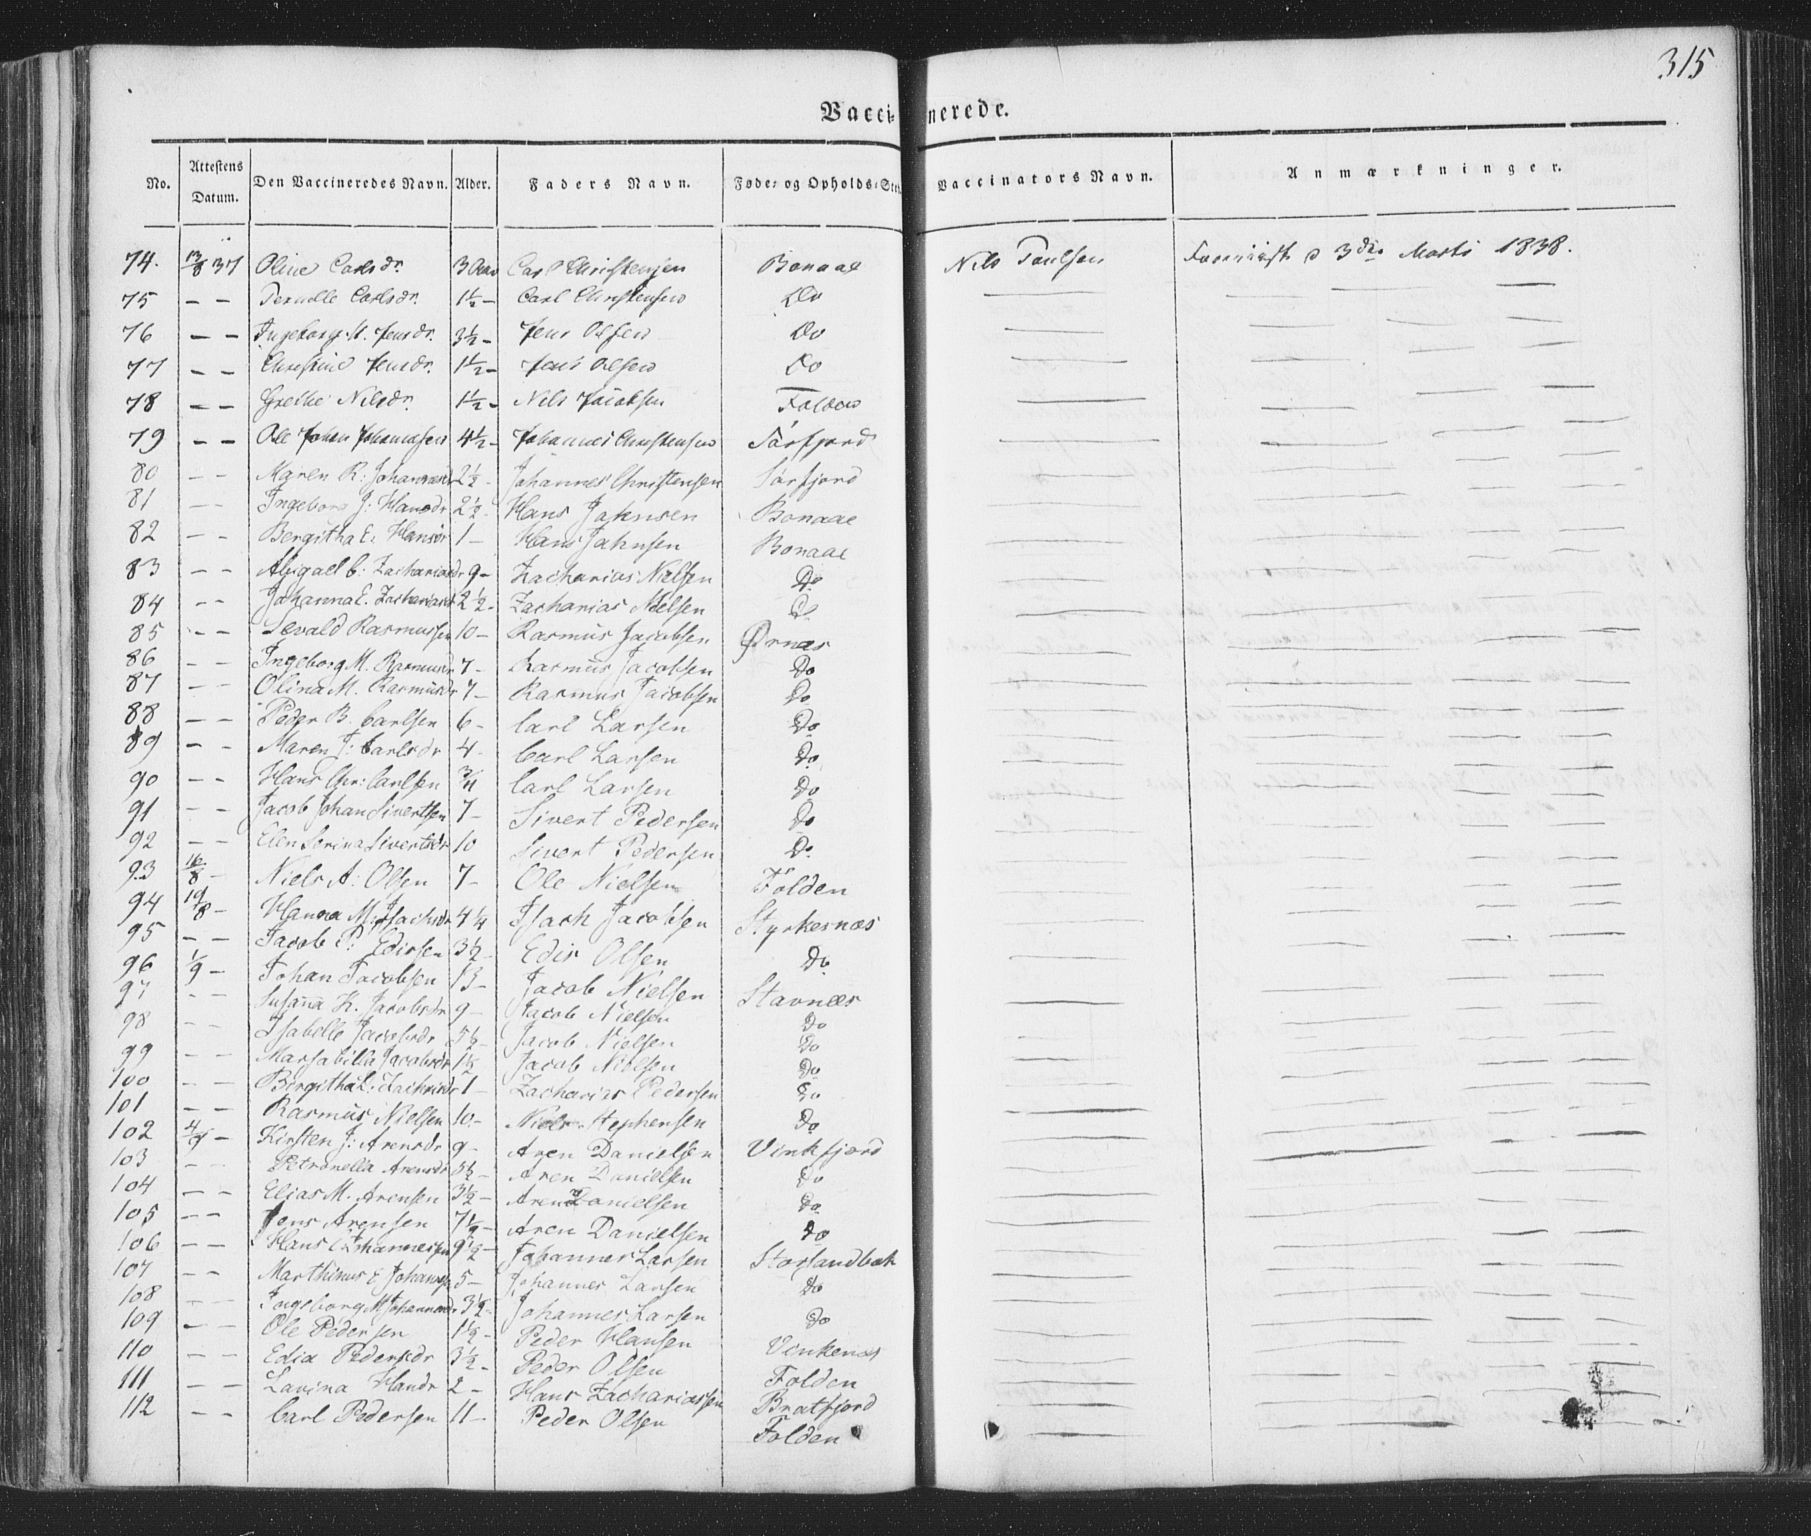 315
Vaccinerede.
No. Attestens Datum. Den Vaccineredes Navn. Alder. Faders Navn. Føde- og Opholds-Sted Vaccinators Navn. Anmærkninger.
74. 13/8 37 Oline Carlsdr. 3 Aar Carl Christensen Bonaae Nils Poulsen 3die Marts 1838.
75 — — Pernille Carlsdr. 1½ — Carl Christensen Do
76 — — Ingeborg M. Jensdr. 3½ — Jens Olsen Do
77 — — Christine Jensdr. 1½ — Jens Olsen Do
78 — — Grethe Nilsdr. 1½ — Nils Jacobsen Folden
79 — — Ole Johan Johannesen 4½ — Johannes Christensen Sørfjord
80 — — Maren K: Johannesdr 2½ — Johannes Christensen Sørfjord
81 — — Ingebora J: Hansdr 2½ — Hans Johnsen Bonaae
82 — — Bergitha E: Hansdr 1 — Hans Johnsen Bonaae
83 — — Abigael C: Zachariasdr 9 — Zacharias Nielsen Do
84 — — Johanna E. Zachariasdr 2½ — Zacharias Nielsen Do
85 — — Sevald Rasmussen 10 — Rasmus Jacobsen Ørnæs
86 — — Ingeborg M. Rasmusdr 7 — Rasmus Jacobsen Do
87 — — Olina M. Rasmusdr 7 — Rasmus Jacobsen Do
88 — — Peder B. Carlsen 6 — Carl Larsen Do
89 — — Maren J: Carlsdr 4 — Carl Larsen Do
90 — — Hans Chr: Carlsen 3/4 Carl Larsen Do
91 — — Jacob Johan Sivertsen 7 — Sivert Pedersen Do
92 — — Elen Serina Sivertsdr 10 Sivert Pedersen Do
93 16/8 — Niels A: Olsen 7 — Ole Nielsen Folden
94 19/8 — Hanna M: Isachsdr 4¼ Isach Jacobsen Styrkesnæs
95 — — Jacob P: Edissen 3½ Edis Olsen Do
96 1/9 — Johan Jacobsen 13 — Jacob Nielsen Stavnæs
97 — — Susanna K. Jacobsdr 9 — Jacob Nielsen Do
98 — — Isabelle Jacobsdr 5½ Jacob Nielsen Do
99 — — Marsabilia Jacobsdr 1½ Jacob Nielsen Do
100 — — Bergitha L: Zachrisdr 1 — Zacharias Pedersen Do
101 — — Rasmus Nielsen 10 — Niels Stephensen Do
102 4/9 — Kirsten J: Arensdr 9 — Aren Danielsen Vinkfjord
103 — — Petronella Arensdr 5½ — Aren Danielsen Do
104 — — Elias M. Arensen 3½ — Aren Danielsen Do
105 — — Jens Arensen 7½ — Aren Danielsen Do
106 — — Hans Johannessen 9½ — Johannes Larsen Storlandbak
107 — — Marthinus E Johannes 5 — Johannes Larsen Do
108 — — Ingeborg M Johannesdr 3½ — Johannes Larsen Do
109 — — Ole Pedersen 1½ — Peder Hansen Vinkenæs
110 — — Edia Pedersdr 3½ — Peder Olsen Folden
111 — — Lavina Hansdr 2 — Hans Zachariassen Bratfjord
112 — — Carl Pedersen 11 — Peder Olsen Folden